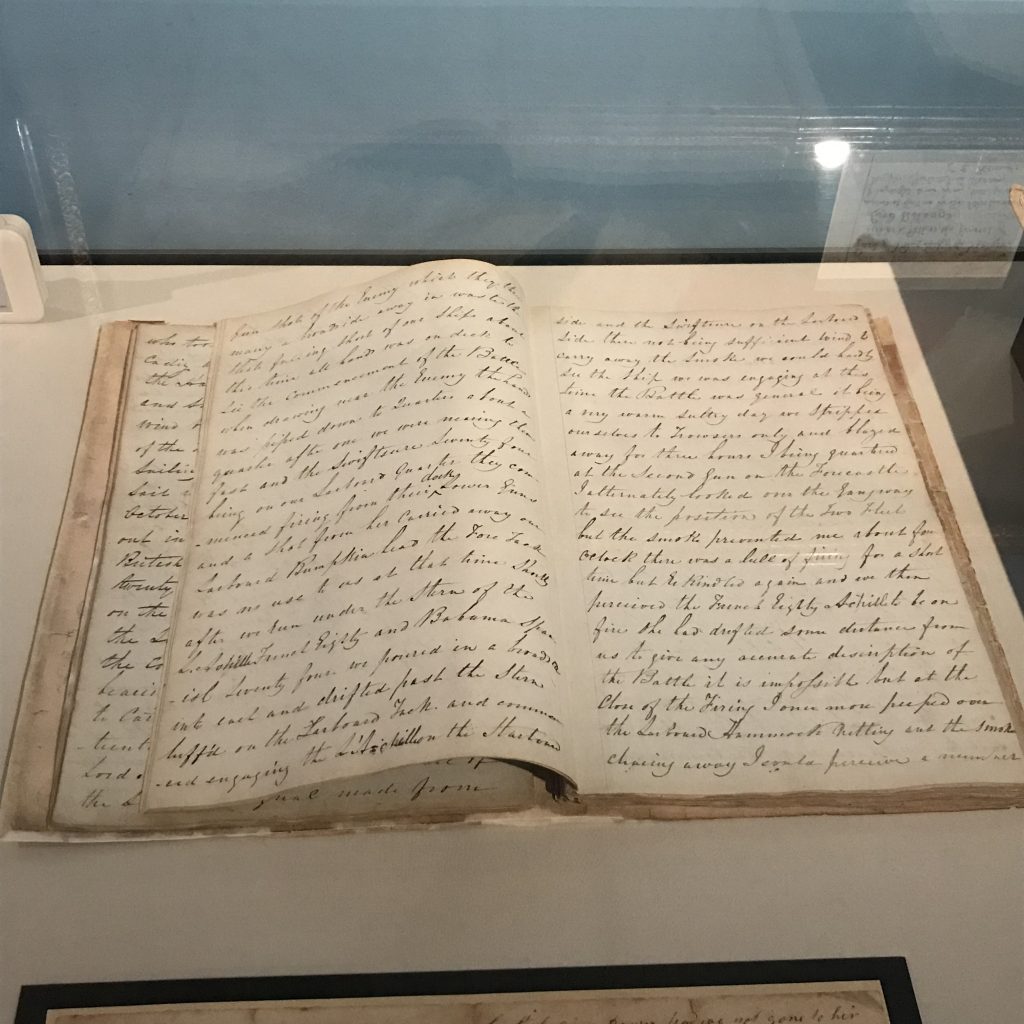 who too
the
and s
wind
of the
Sailin
Sail
October
out in
British
twenty
on the
the L
the Co
to Ca
Lord
the L
been shot of the Enemy which they
many a broadside away in waste the
Shot falling short of our Ships about
this time all hands was on deck to
See the Commencement of the Battle
when drawing near the Enemy the hands
was piped down to Quarters about a
quarter after one we were nearing them
fast and the Swiftsure Seventy four
being on our Larbord Quarter they com
-menced firing from their lower deck Guns
and a Shot from her Carried away our
Larboard Bumpkin head the Fore Tack
was no use to us at that time Shortly
after we run under the Stern of the
L,Achille French Eighty and Bahama Span
-ish Seventy four we poured in a broadside
into each and drifted past the Stern
luff'd on the Larboard Tack and commen
-ced engaging the L'Achille on the Starboard
gnal made from
side and the Swiftsure on the Larbord
Side there not being sufficient wind to
carry away the Smoke we could hardly
See the Ship we was engaging at this
time the Battle was general it being
a very warm Sultry day we Stripped
ourselves to Trowsers only and blazed
away for three hours I being quartered
at the Second Gun on the Forecastle
I alternately looked over the Gangway
to see the position of the Two Fleet
but the Smoke prevented me about four
Oclock there was a lull of firing for a short
time but Rekindled again and we then
perceived the French Eighty Achille to be on
fire She had drifted some distance from
us to give any accurate description of
the Battle it is impossible but at the
Close of the Firing I once more peeped over
the Larboard Hammock Netting and the Smoke
clearing away I could perceive a number
having not gone to his